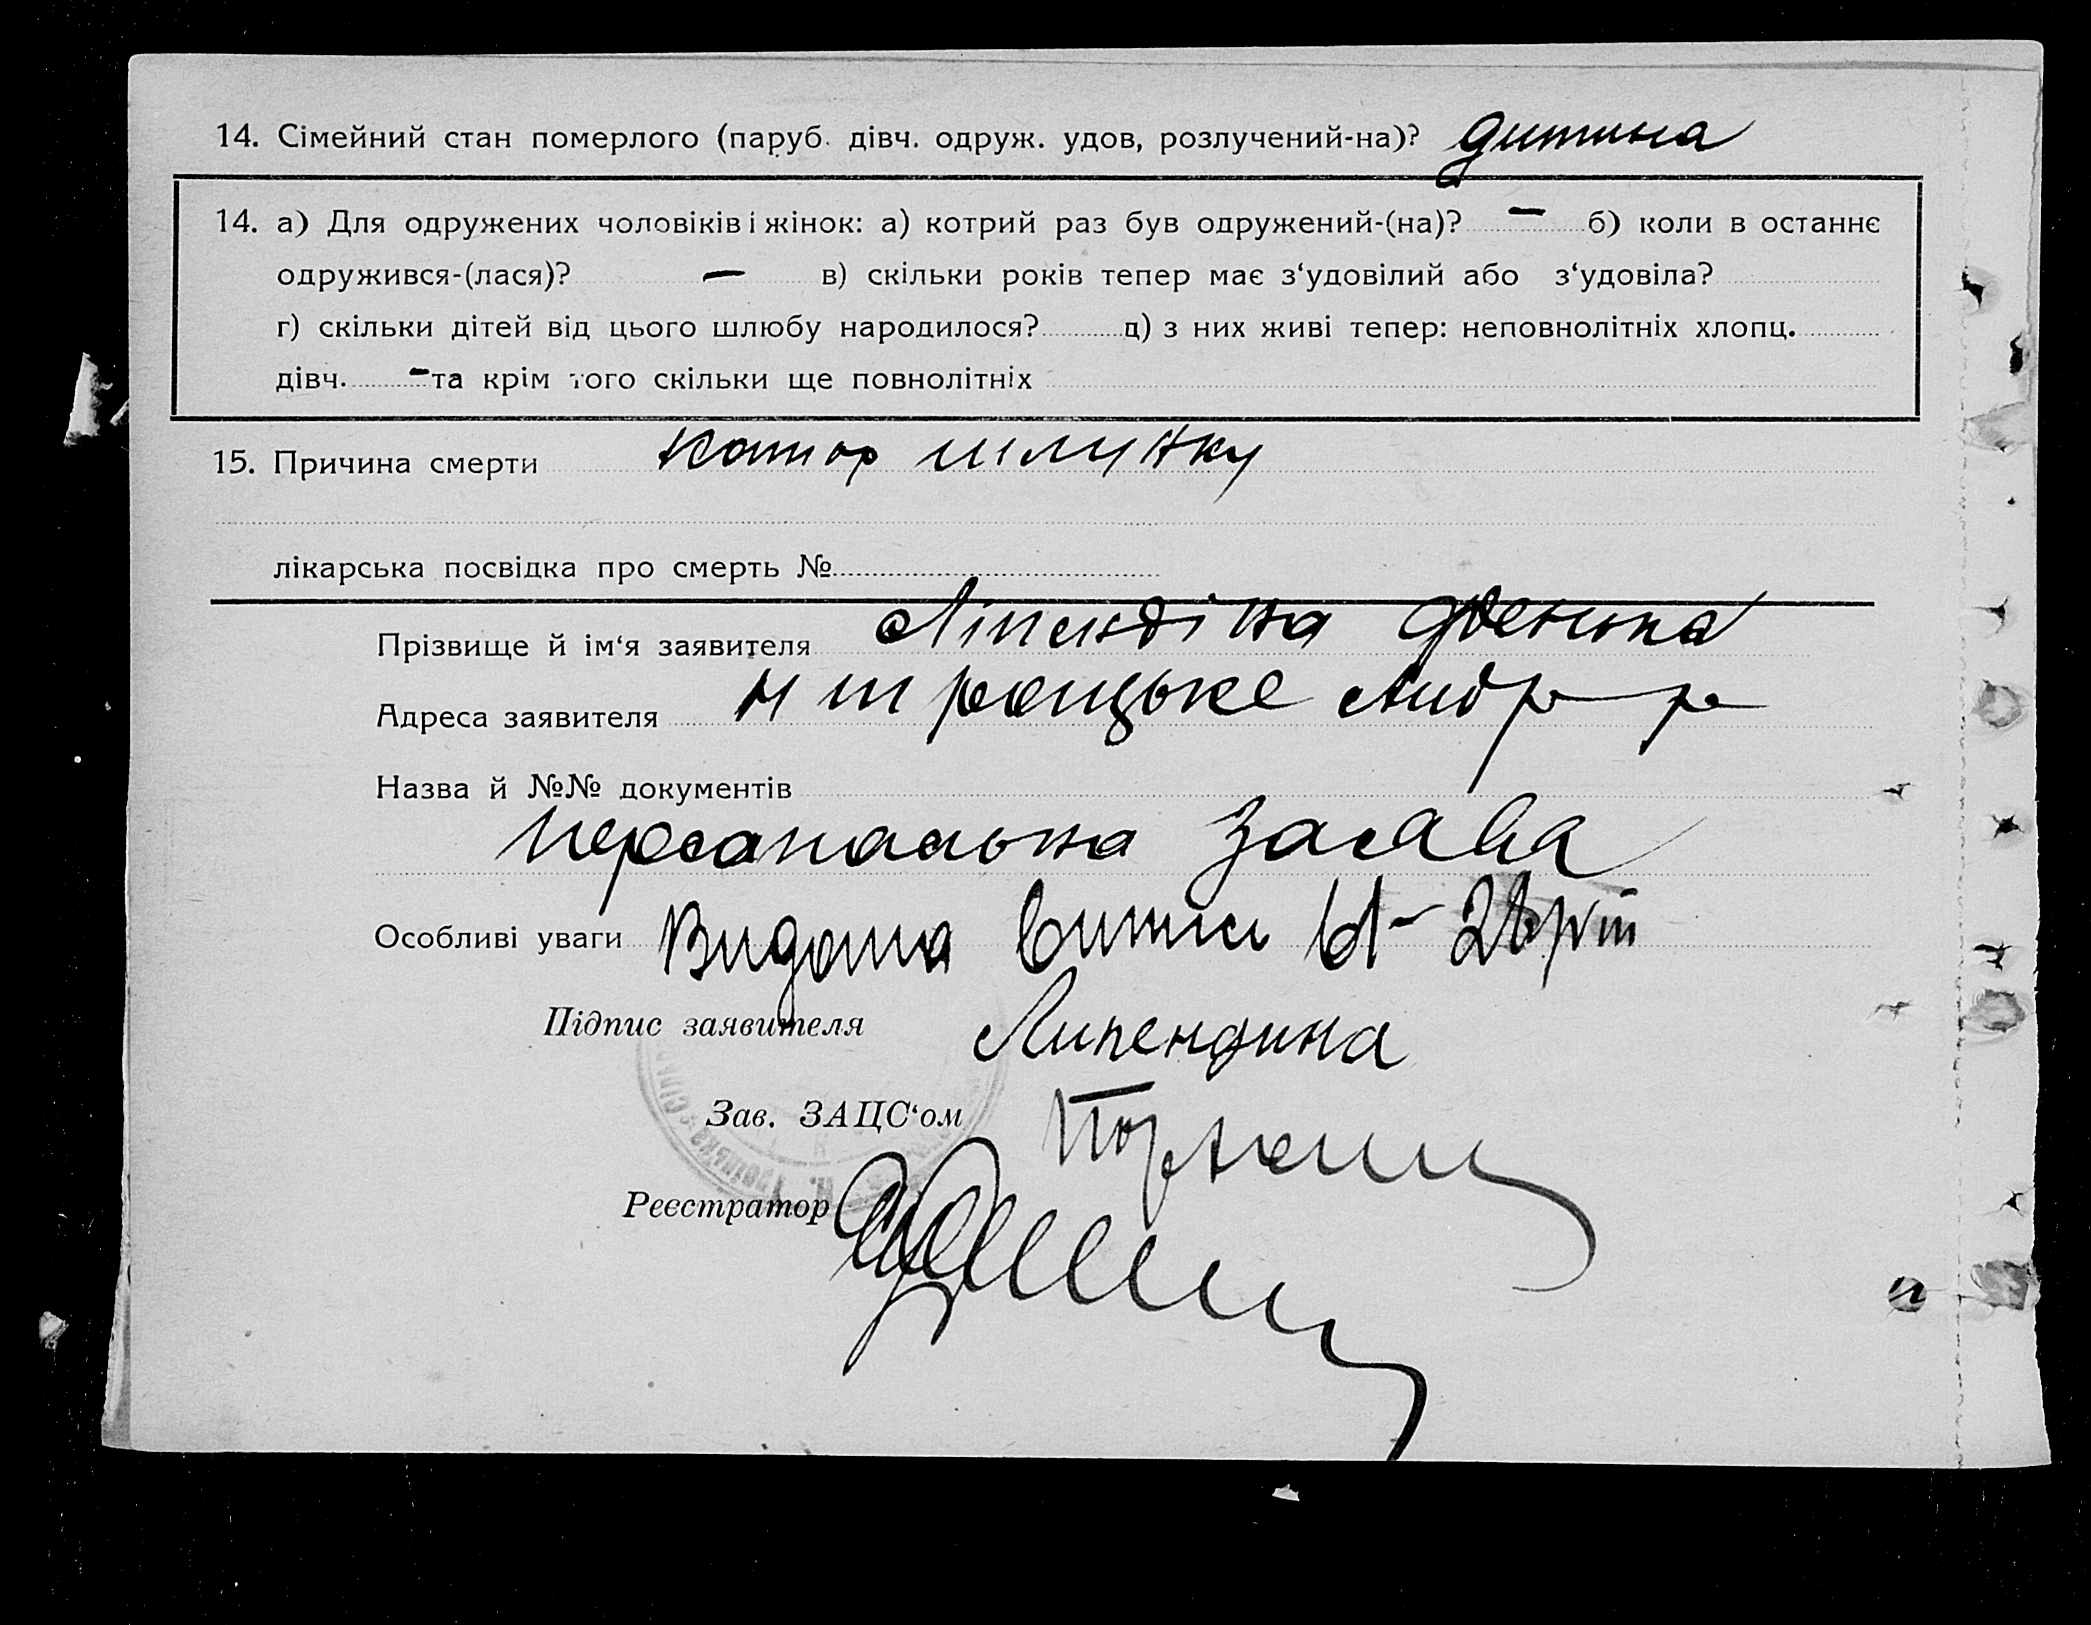 14. Сімейний стан померлого (паруб. дівч. одруж. удов, розлучений-на)? дитина
14. а) Для одружених чоловіків і жінок: а) котрий раз був одружений-(на)? — б) коли в останнє
одружився-(лася)? — в) скільки років тепер має з‘удовілий або з‘удовіла?
г) скільки дітей від цього шлюбу народилося? д) з них живі тепер: неповнолітніх хлопц.
дівч. - та крім того скільки ще повнолітніх
15. Причина смерти катар шлунку
лікарська посвідка про смерть №
Прізвище й ім‘я заявителя Ліпендіна
Адреса заявителя Н троицьке
Назва й №№ документів
персональна заява
Особливі уваги Видана
Підпис заявителя Липендина
Зав. ЗАЦС‘ом
Реєстратор